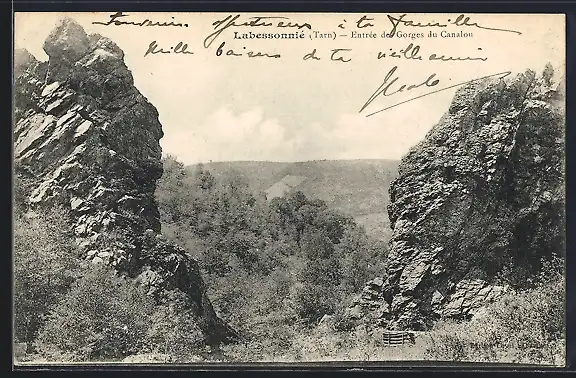 Souvenir affectueux à ta famille
Labessonnié (Tarn) — Entrée des Gorges du Canalou
Mille baisers de ta vieille